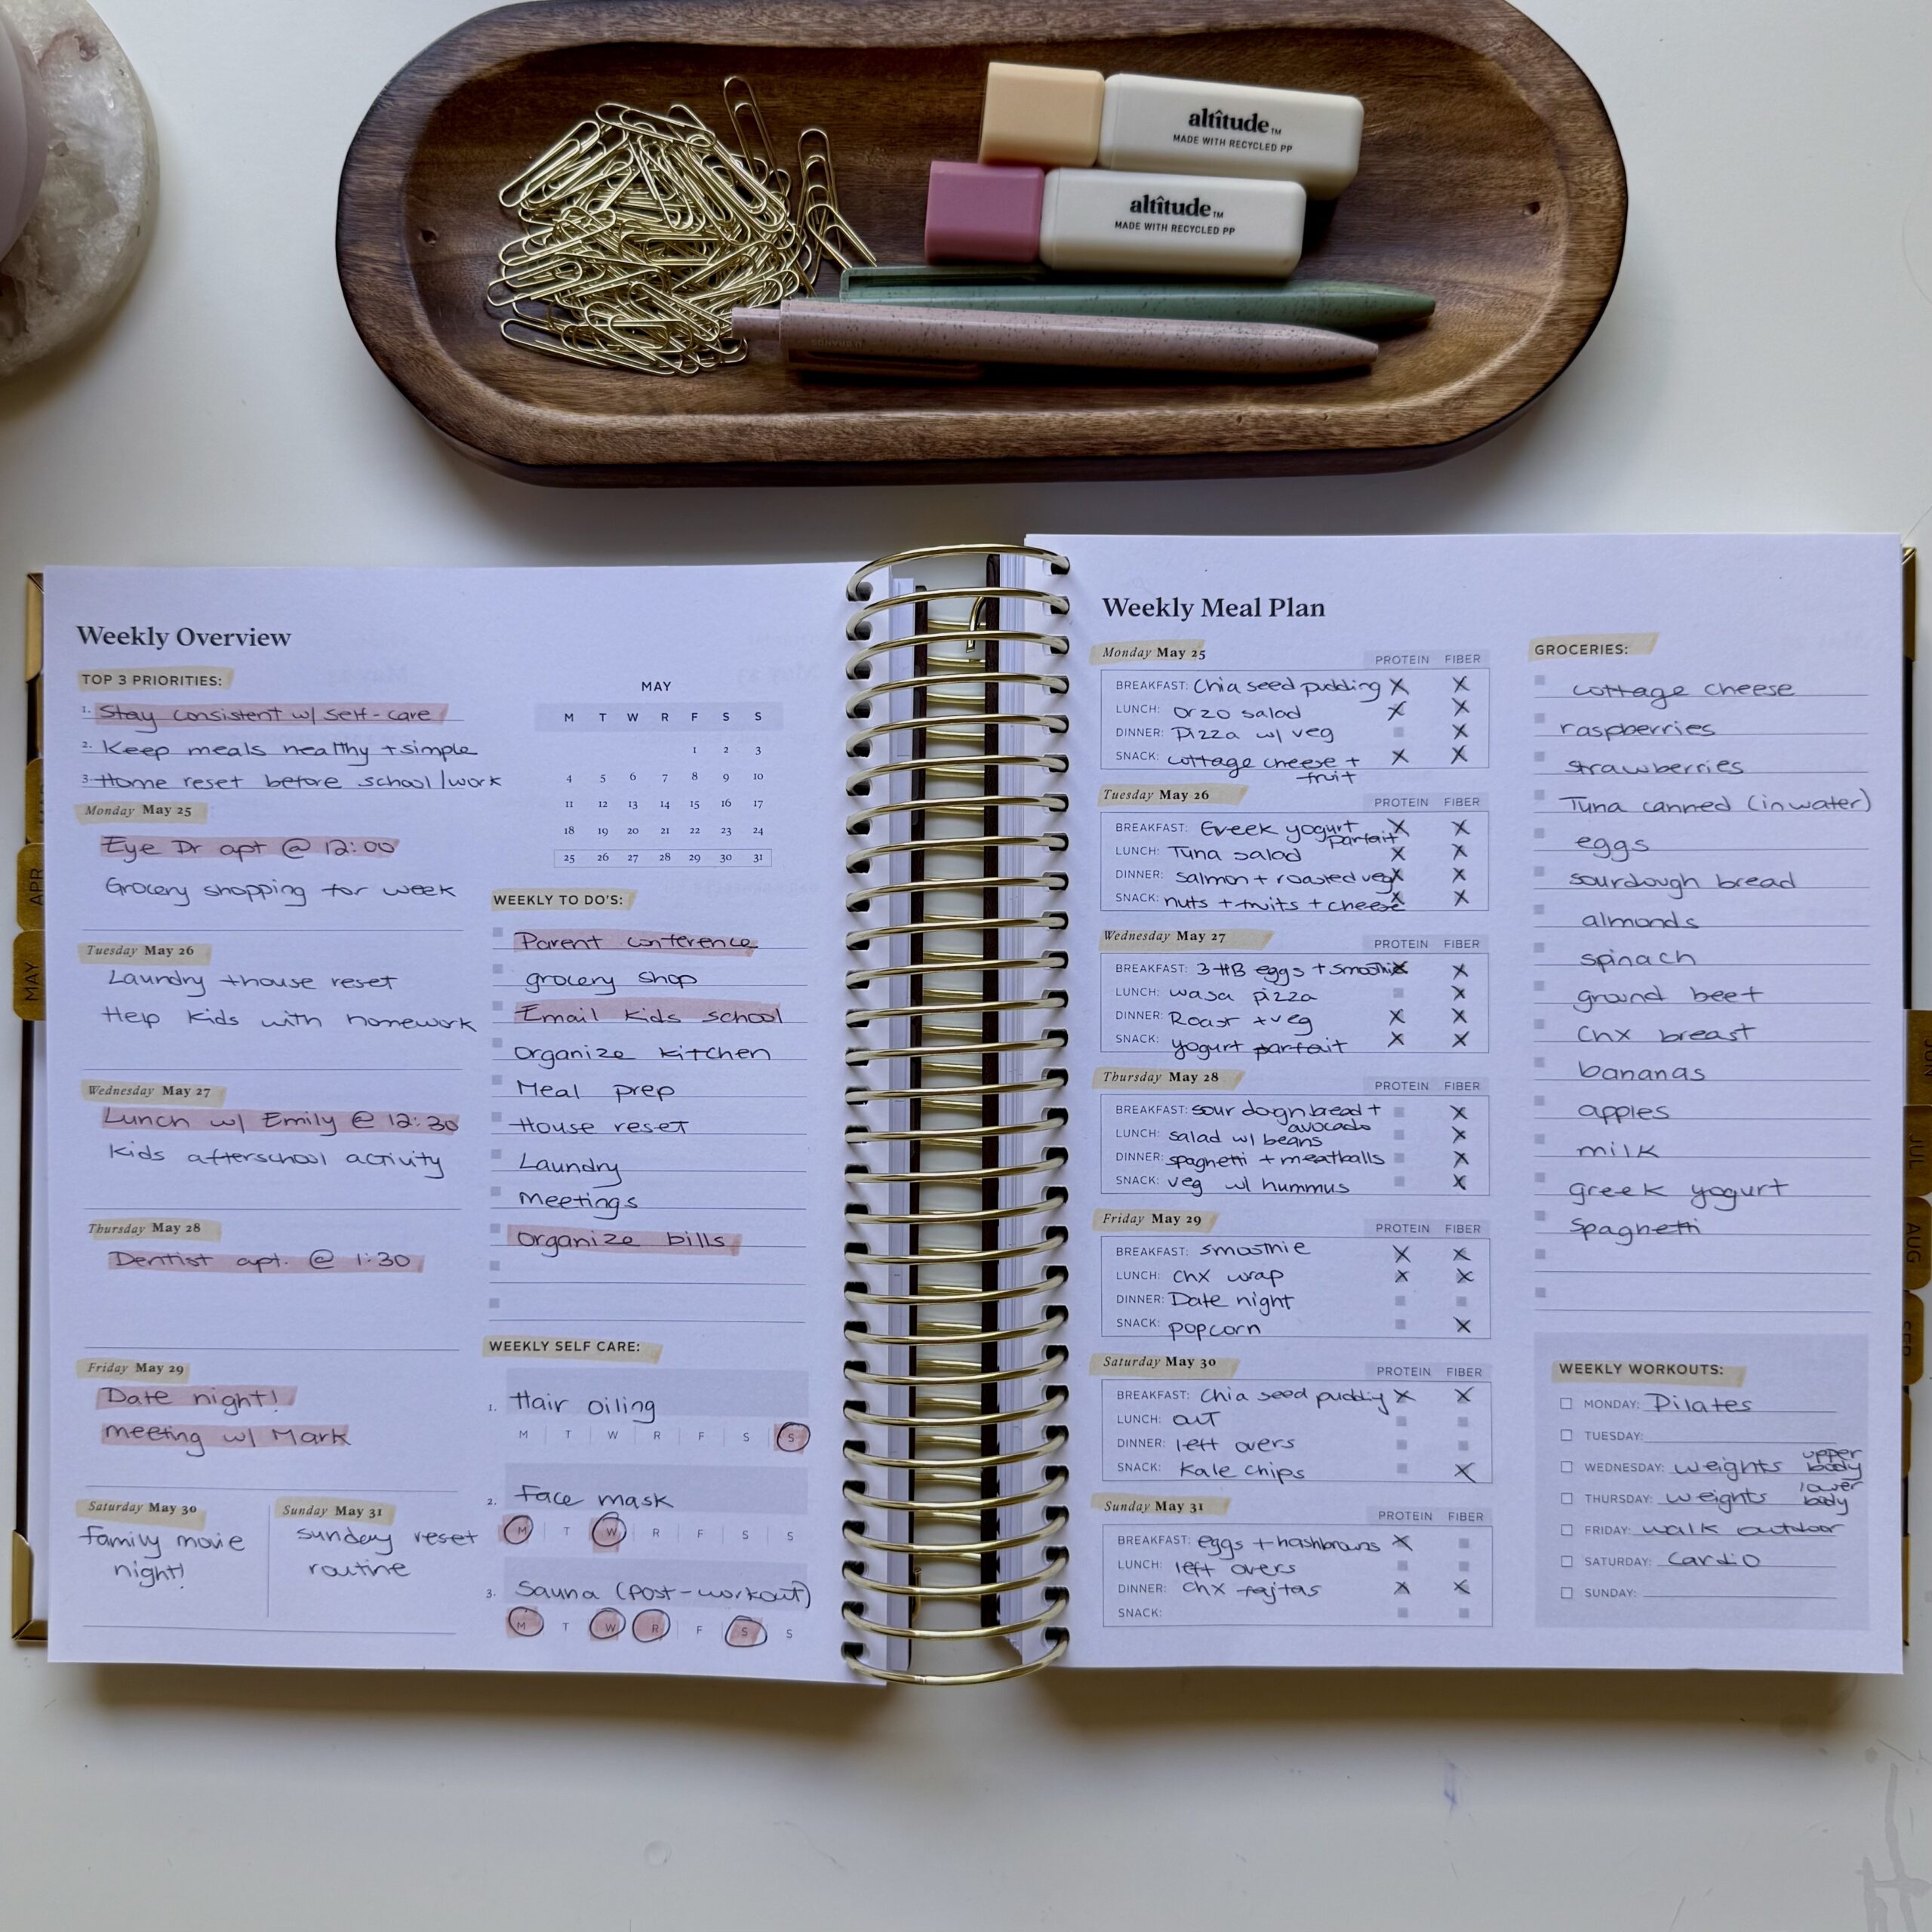 altîtude™
MADE WITH RECYCLED PP
altîtude™
MADE WITH RECYCLED PP
Weekly Overview
TOP 3 PRIORITIES:
1. Stay consistent w/ self-care
2. Keep meals healthy + simple
3. Home reset before school/work
Monday May 25
Eye Dr apt @ 12:00
Grocery shopping for week
Tuesday May 26
Laundry + house reset
Help kids with homework
Wednesday May 27
Lunch w/ Emily @ 12:30
Kids afterschool activity
Thursday May 28
Dentist apt. @ 1:30
Friday May 29
Date night!
meeting w/ Mark
Saturday May 30
family movie
night!
Sunday May 31
sunday reset
routine
MAY
M T W R F S S
1 2 3
4 5 6 7 8 9 10
11 12 13 14 15 16 17
18 19 20 21 22 23 24
25 26 27 28 29 30 31
WEEKLY TO DO'S:
Parent conference
grocery shop
Email kids school
Organize kitchen
Meal prep
House reset
Laundry
Meetings
Organize bills
WEEKLY SELF CARE:
1. Hair oiling
M T W R F S S
2. Face mask
M T W R F S S
3. Sauna (post-workout)
M T W R F S S
APR
MAY
Weekly Meal Plan
Monday May 25
PROTEIN FIBER
BREAKFAST: Chia seed pudding X X
LUNCH: Orzo salad X X
DINNER: Pizza w/ veg X
SNACK: cottage cheese + X X
fruit
Tuesday May 26
PROTEIN FIBER
BREAKFAST: Greek yogurt X X
parfait
LUNCH: Tuna salad X X
DINNER: salmon + roasted veg X X
SNACK: nuts + fruits + cheese X X
Wednesday May 27
PROTEIN FIBER
BREAKFAST: 3 HB eggs + smoothie X X
LUNCH: wasa pizza X
DINNER: Roast + veg X X
SNACK: yogurt parfait X X
Thursday May 28
PROTEIN FIBER
BREAKFAST: sour dough bread + X
avocado
LUNCH: salad w/ beans X
DINNER: spaghetti + meatballs X
SNACK: veg w/ hummus X
Friday May 29
PROTEIN FIBER
BREAKFAST: smoothie X X
LUNCH: chx wrap X X
DINNER: Date night
SNACK: popcorn X
Saturday May 30
PROTEIN FIBER
BREAKFAST: Chia seed pudding X X
LUNCH: out
DINNER: left overs
SNACK: Kale chips X
Sunday May 31
PROTEIN FIBER
BREAKFAST: eggs + hashbrowns X
LUNCH: left overs
DINNER: chx fajitas X X
SNACK:
GROCERIES:
cottage cheese
raspberries
strawberries
Tuna canned (in water)
eggs
sourdough bread
almonds
spinach
ground beef
chx breast
bananas
apples
milk
greek yogurt
spaghetti
WEEKLY WORKOUTS:
MONDAY: Pilates
TUESDAY:
WEDNESDAY: weights upper body
THURSDAY: weights lower body
FRIDAY: walk outdoor
SATURDAY: cardio
SUNDAY:
JUN
JUL
AUG
SEP